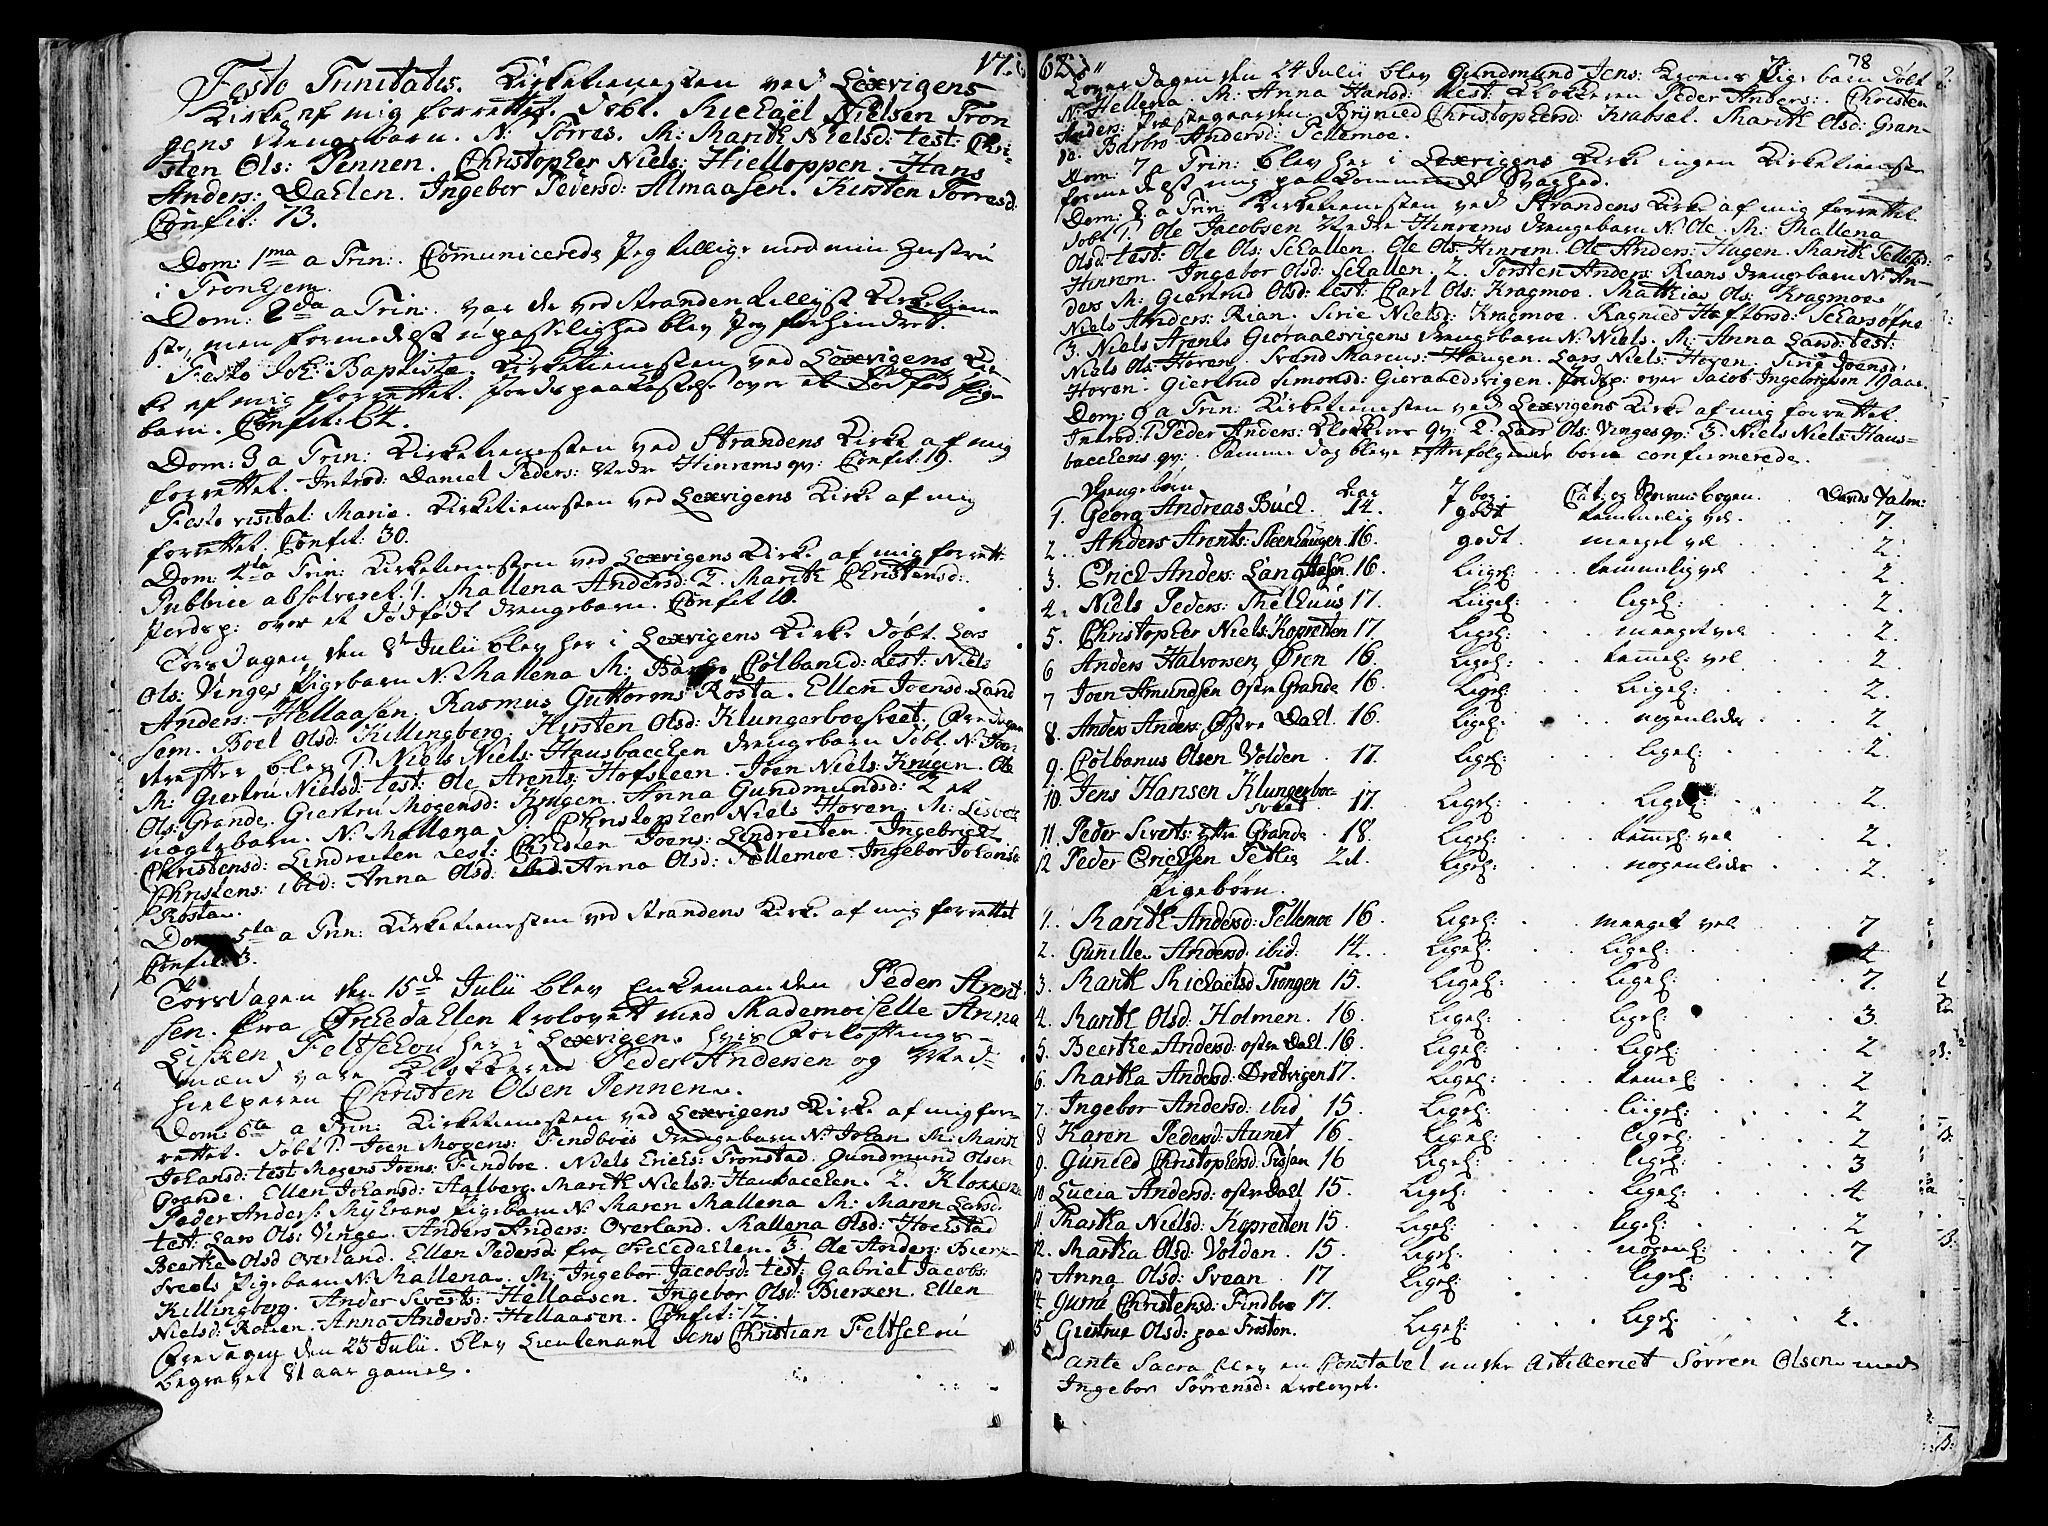 17
Festo Trinitatis. Kirketienesten ved Lexvigens
Kirke af mig forrettet. Døbt. Michaël Nielsen Tron
gens drengebarn. N: Torres. M: Marith Nielsd: test: Chri-
sten Ols: Pennen. Christopher Niels: Hielloppen. Hans
Anders: Daelen. Ingebor Pedersd: Almaasen. Kirsten Torresd:
Confit: 73.
Dom: 1ma a Trin: Comunicerede Jeg tillige med min Hustru
i Tronhjem.
Dom: 2da a Trin: var de ved Stranden tillyst Kirketiene-
ste, men formedelst upasselighed blev Jeg forhindret.
Festo Joh: Baptistæ. Kirketienesten ved Lexvigens Kir-
ke af mig forrettet. Jordspaakastelse over et Dødfød Pige-
barn. Confit: 64.
Dom: 3 a Trin: Kirketienesten ved Strandens Kirke af mig
forrettet. Introd: Daniel Peders: Nedre Hinrems qv: Confit: 19.
Festo visitat: Mariæ. Kirketienesten ved Lexvigens Kirke af mig
forrettet. Confit: 30.
Dom: 4ta a Trin: Kirketienesten ved Lexvigens Kirke af mig forrett:
Publice absolveret 1. Mallena Andersd: 2. Marith Christensd:
Jordsp: over et dødfødt drengebarn. Confit 10.
Torsdagen den 8de Julii blev her i Lexvigens Kirke døbt. Lars
Ols: Vinges Pigebarn N: Mallena M: Colbanid: test: Niels
Anders: Hellaasen. Rasmus Guttorms Røsta. Ellen Joensd: Land
sem. Boel Olsd: Killingberg. Kirsten Olsd: Klungerboesveet.
derefter blev 1. Niels Niels: Hausbacchen drengebarn døbt. N: Joen
M: Giertru Nielsd: test: Ole Arents: Hofsteen. Joen Niels: Krugen. Ole
Ols: Grande. Giertru Mogensd: Krugen. Anna Gundmundsd: 2 et
uægtebarn N: Mallena P. Christopher Niels Hoven. M: Lisbet
Christensd: Lindreiten test: Christen Joens: Lindreiten. Ingebricht
Christens: ibid: Anna Olsd: ibid Anna Olsd: Tellemoe. Ingebor Johansd:
Røsta.
Dom: 5ta a Trin: Kirketienesten ved Strandens Kirke af mig forrettet
Confit: 3.
Torsdagen den 15de Julii blev Enkemanden Peder Arent
sen. fra Ørkedahlen trolovet med Mademoiselle Anna
Lisken Feltschou her i Lexvigen. hvis Forloftnings-
mænd vare Klokkeren Peder Andersen og Med-
hielperen Christen Olsen Pennen.
Dom: 6ta a Trin: Kirketienesten ved Lexvigens Kirke af mig for-
rettet. Døbt 1. Joen Mogens: Findboes drengebarn N: Johan M: Marit
Johansd: test Mogens Joens: Findboe. Niels Erichs: Tronstad. Gundmund Olsen
Grande. Ellen Johansd: Aalberg. Marith Nielsd: Hausbacchen. 2. Klokkeren
Peder Anders: Myhrans Pigebarn N: Maren Mallena M: Maren Larsd:
test: Lars Ols: Vinge. Anders Anders: Overland. Mallena Olsd: Hochstad
Beerthe Olsd Overland. Ellen Pedersd. fra Ørkedahlen. 3. Ole Anders: Bierke-
sveets Pigebarn N: Mallena. M: Ingebor Jacobsd: test: Gabriel Jacobs:
Killingberg. Ander Siverts: Hellaasen. Ingebor Olsd: Bierken. Ellen
Nielsd: Rotien. Anna Andersd: Hellaasen. Confit: 12.
Fredagen den 23 Julii. blev Lieutenant Jens Christian Feltschou
begravet 81 aar gamel.
62
78
Løverdagen den 24 Julii blev Gundmund Jens: Pigebarn døbt
N: Hellena. M: Anna Hansd: test: Klokkeren Peder Anders: Christen
Anders: Præstegaarden. Brynied Christophersd: Krabsæt. Marith Olsd: Gran-
Barbro Andersd: Tellemoe.
Dom: 7 a Trin: blev her i Lexvigens Kirke ingen Kirketieneste
formedelst mig paakommende Svaghed.
Dom: 8 a Trin: Kirketienesten ved Strandens Kirke af mig forrettet.
Døbt 1. Ole Jacobsen Nedre Hinrems drengebarn N: Ole. M: Mallena
Olsd: test: Ole Ols: Schallen. Ole Ols: Hinrem. Ole Anders: Hagen. Marith
Hinrem. Ingebor Olsd: Schallen. 2. Torsten Anders: Rians drengebarn N: An-
ders M: Giertrud Olsd: test: Carl Ols: Kragmoe. Mathias Ols: Kragmoe
Niels Anders: Rian. Sirie Nielsd: Kragmoe. Ragnied
3. Niels Arents Gioraaesvigens drengebarn N: Niels. M: Anna Larsd: test:
Niels Ols: Hoven. Svend Marcus: Haugen. Lars Niels: Hoven. Sirie Joensd:
Hoven. Giertrud Simonsd: Gioraaedsvigen. Jordsp: over Jacob Ingebregtsen 19 aar.
Dom: 9 a Trin: Kirketienesten ved Lexvigens Kirke af mig forrettet
Introd: 1. Peder Anders: Klokkers qv: 2. Lars Ols: Vinges qv: 3. Niels Niels: Haus-
bacchens qv: Samme dag bleve efterfølgende børn confirmerede.
Drengebørn Aar J bog. Cat: og Davids Talm:
1. Georg Andreas Buch. 14. godt temmelig vel 7.
2. Anders Arents: Steenhaugen 16. godt. meeget vel 2.
3. Erich Anders: Langaasen 16. liigel: temmelig vel 2.
4. Niels Peders: Melhuus 17. Liigel: ligel: 2.
5. Christopher Niels: Kopretten 17 ligel: meeget vel 2.
6 Anders Halvorsen Øren 16. ligel: temel: vel 2.
7 Joen Amundsen Østre Grande 16. ligel: Liigel: 2.
8. Anders Anders: Østre Dahl 16. ligel: nogenledes 2
9. Colbanus Olsen Volden 17. ligel: ligel: 2.
10. Jens Hansen Klungerboe-
sveet 17. ligel: ligel: 2.
11. Peder Siverts: ytre Grande 18. ligel: temel: vel 2.
12 Peder Erichsen Tetlie 21. ligel: nogenledes 2.
Pigebørn.
1. Marith Andersd: Tellemoe 16. ligel: meeget vel 7
2. Gunille Andersd: ibid: 14. ligel: ligel: 4
3. Marith Michaelsd Trongen 15. ligel: ligel: 7.
4. Marith Olsd: Holmen. 16. ligel: ligel: 3.
5. Beerthe Andersd: østre Dahl 16. ligel: ligel: 2
6. Martha Andersd: Drebvigen 17. ligel: temel 2
7. Ingebor Andersd: ibid 15. ligel: liigel: 2
8 Karen Pedersd: Aunet 16. ligel: ligel: 2
9. Gunild Christophersd: Tissan 16 ligel: ligel: 3
10 Lucia Andersd: østre Dahl 15. ligel: ligel: 4
11 Martha Nielsd: Kopretten 15. ligel: ligel: 2
12. Martha Olsd: Volden. 15. ligel: nogenl: 7
13 Anna Olsd: Svean. 17 ligel: ligel:
14 Guru Christensd: Findboe 17. ligel:
15 Giertrue Olsd: paa Froston. ligel: ligel: 2.
Ante Sacra blev en Constabel under Artilleriet Sørren Olsen med
Ingebor Sørrensd: trolovet.